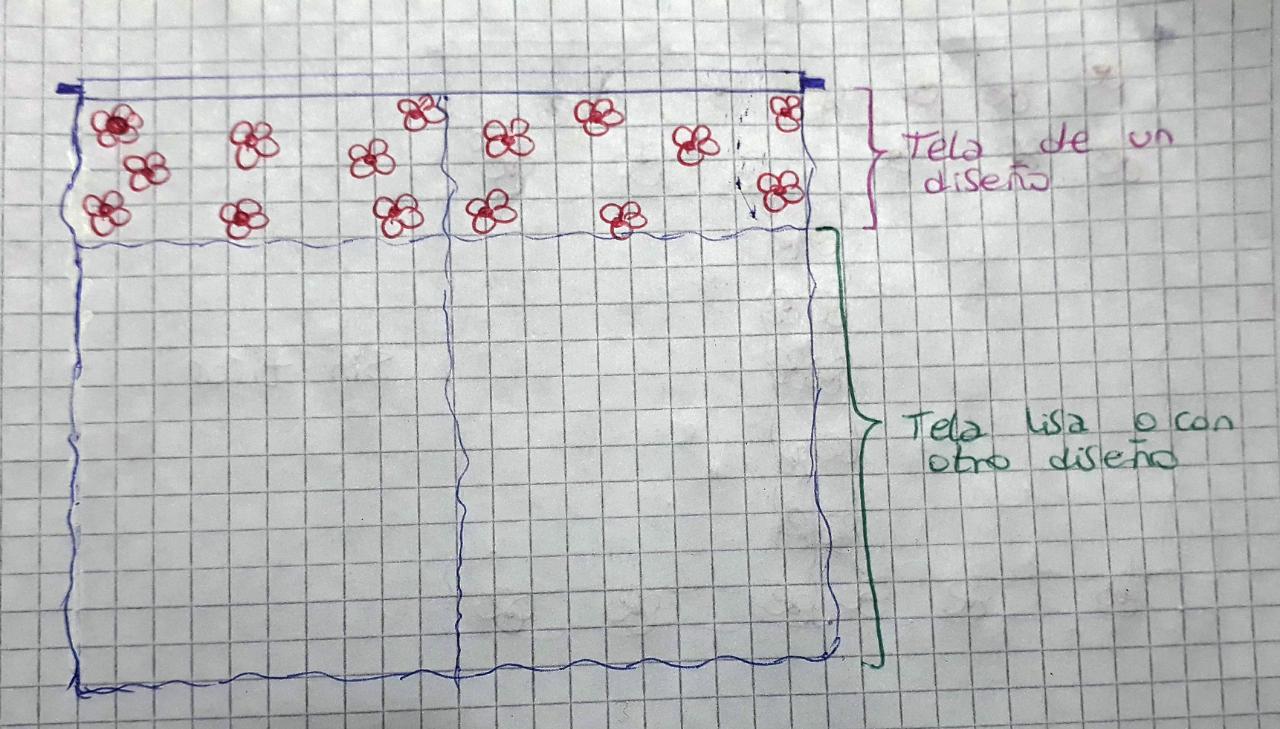 Tela de un
diseño
Tela lisa o con
otro diseño